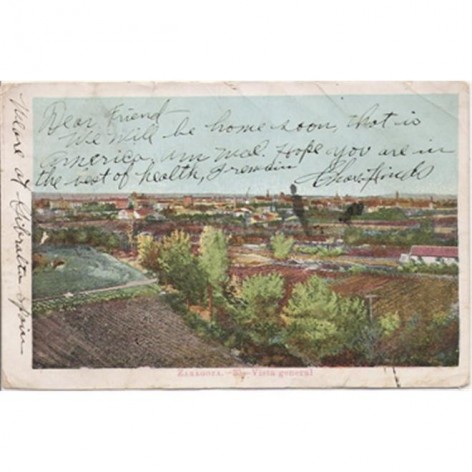 Dear Friend
We will be home soon, that is
America, am well. Hope you are in
the best of health, I remain
More at Gibralta Spain
ZARAGOZA.—30—Vista general